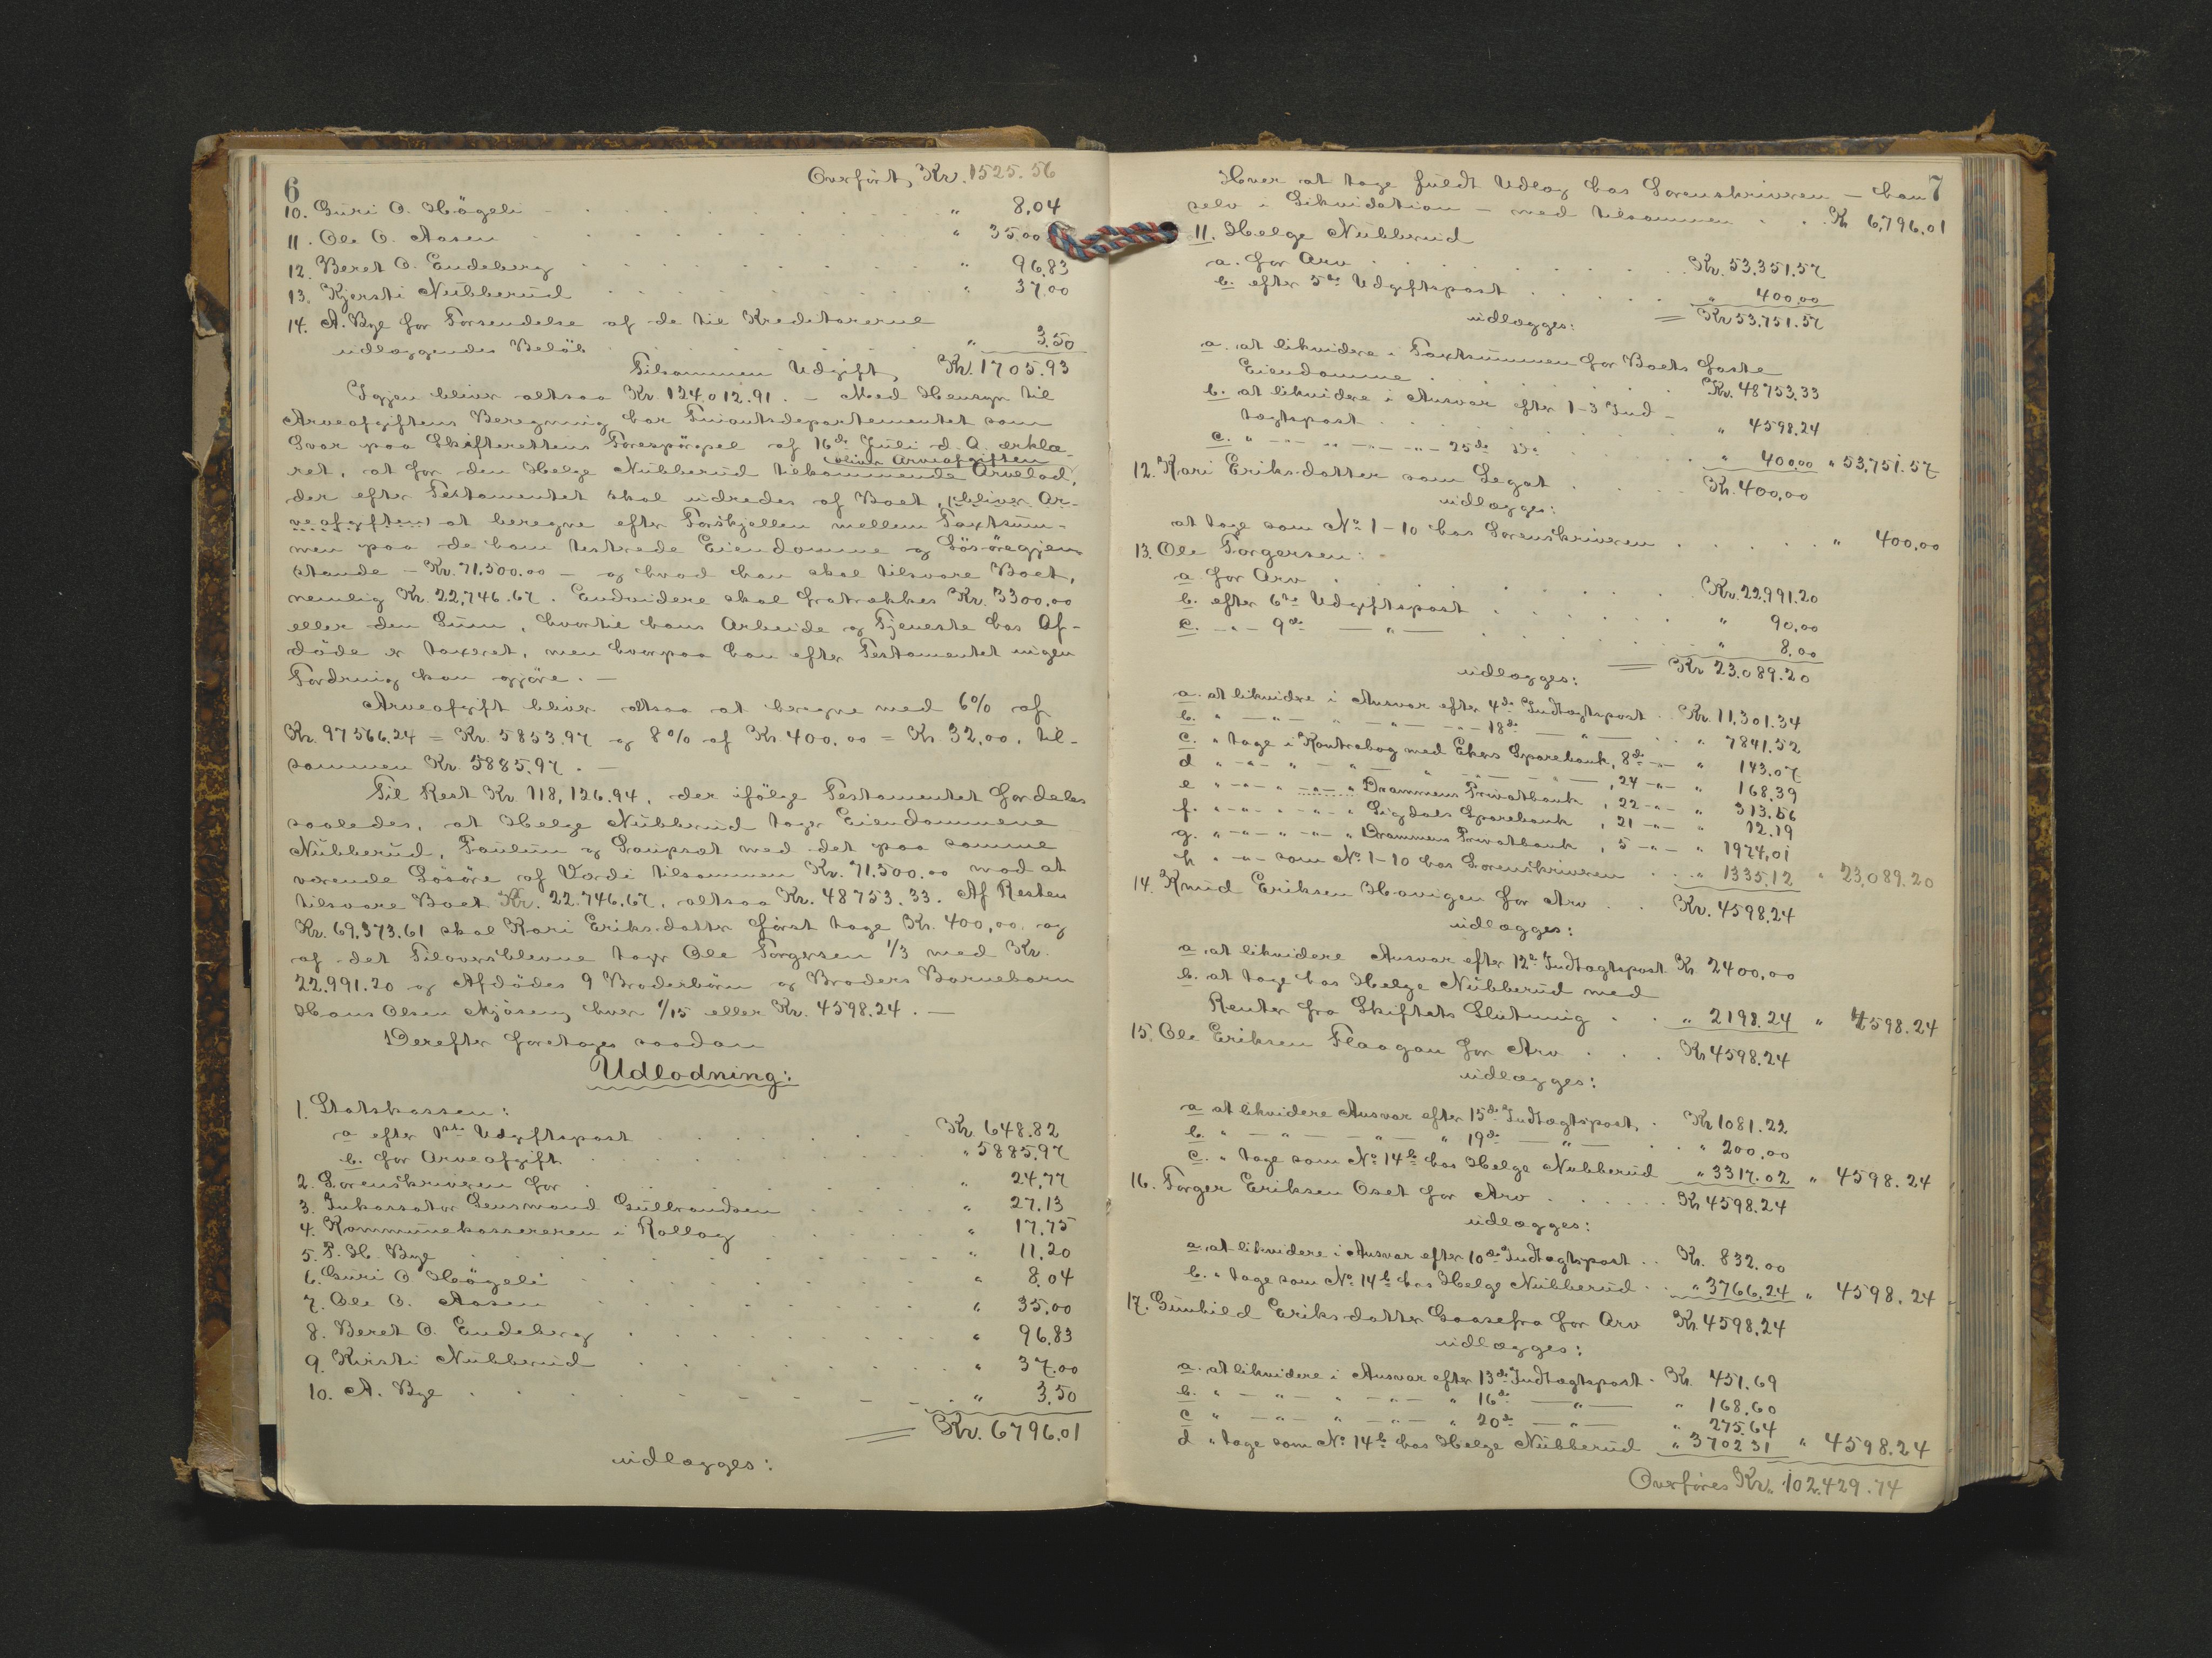 6
Overført, Kr. 1525.56
10. Guri O. Høgeli " 8,04
11. Ole O. Aasen " 35.00
12. Beret O. Endeberg " 96,83
13. Kjersti Nubberud " 37.00
14. A. Bye for Forsendelse af de til Kreditorerne
udlæggendes Beløb " 3.50
Tilsammen Udgift, Kr. 1705.93
Igjen bliver altsaa Kr. 124.012.91. – Med Hensyn til
Arveafgiftens Beregning har Finantsdepartementet som
Svar paa Skifterettens Forespørgsel af 16de Juli d. A. erklæ-
ret, at for den Helge Nubberud tilkommende Arvelod,
bliver Arveafgiften
der efter Testamentet skal udredes af Boet, (bliver Ar-
veafgiften) at beregne efter Forskjellen mellem Taxtsum-
men paa de ham testerede Eiendomme og Løsøregjen-
stande – Kr. 71.500.00 – og hvad han skal tilsvare Boet,
nemlig Kr. 22,746.67. Endvidere skal fratrækkes Kr. 3300,00
eller den Sum, hvortil hans Arbeide og Tjeneste hos Af-
døde er taxeret, men hvorpaa han efter Testamentet ingen
Fordring kan gjøre. –
Arveafgift bliver altsaa at beregne med 6% af
Kr. 97566.24 = Kr. 5853.97 og 8% af Kr 400.00 = Kr 32,00, til-
sammen Kr. 5885.97. –
Til Rest Kr. 118,126.94, der ifølge Testamentet fordeles
saaledes, at Helge Nubberud tager Eiendommene
Nubberud, Paulun og Laupsat med det paa samme
værende Løsøre af Værdi tilsammen Kr. 71.500.00 mod at
tilsvare Boet Kr. 22.746.67, altsaa Kr. 48753.33. Af Resten
Kr. 69.373.61 skal Kari Eriksdatter først tage Kr. 400,00 og
af det Tiloversblevne tager Ole Torgersen 1/3 med Kr.
22.991.20 og Afdødes 9 Broderbørn og Broders Barnebarn
Hans Olsen Mjøseng hver 1/15 eller Kr. 4598.24. –
Derefter foretages saadan
Udlodning:
1. Statskassen:
a efter 1ste Udgiftspost Kr. 648.82
b. for Arveafgift " 5885.97
2. Sorenskriveren for " 24,77
3. Inkassator Lensmand Gulbrandsen " 27.13
4. Kommunekassereren i Rollag " 17.75
5. P. H. Bye " 11.20
6. Guri O Høgeli " 8.04
7. Ole O. Aasen " 35.00
8. Beret O. Endeberg " 96.83
9. Kirsti Nubberud " 37.00
10. A. Bye " 3,50
= Kr. 6796.01
udlægges:
7
Hver at tage fuldt Udlæg hos Sorenskriveren – han
selv i Likvidation – med tilsammen Kr 6,796.01
11. Helge Nubberud
a. for Arv Kr. 53.351.57
b. efter 5te Udgiftspost " 400,00
= Kr 53.751.57
udlægges:
a. at likvidere i Taxtsummen for Boets faste
Eiendomme Kr. 48753.33
b. at likvidere i Ansvar efter 1-3 Ind-
tægtspost " 4598.24
c. " -"- " -"- -"- 25de Do " 400,00 " 53,751.57
12. Kari Eriksdatter som Legat Kr. 400,00
udlægges:
at tage som No 1-10 hos Sorenskriveren " 400,00
13. Ole Torgersen:
a for Arv Kr. 22991.20
b. efter 6te Udgiftspost " 90,00
c. -"- 9de -"- " 8.00
= Kr 23.089.20
udlægges:
a. at likvidere i Ansvar efter 4de Indtægtspost Kr. 11,301.34
b. " -"- " -"- -"- 18de -"- " 7841.52
c. " tage i Kontrabog med Ekers Sparebank, 8de -"- " 143.07
d " -"- " -"- " -"- -"- , 24 -"- " 168.39
e " -"- " -"- " Drammens Privatbank , 22 -"- " 313.56
f. " -"- " -"- " Sigdals Sparebank , 21 -"- " 12.19
g. " -"- " -"- " Drammens Privatbank , 5 -"- " 1974,01
h " -"- som No 1-10 hos Sorenskriveren " 1335.12 " 23,089.20
14. Knud Eriksen Havigen for Arv Kr. 4598.24
udlægges:
a. at likvidere Ansvar efter 12te Indtægtspost Kr 2400,00
b. at tage hos Helge Nubberud med
Renter fra Skiftets Slutning " 2198.24 " 4598.24
15. Ole Eriksen Flaagan for Arv Kr 4598.24
udlægges:
a at likvidere Ansvar efter 15de Indtægtspost, Kr 1081.22
b. " -"- -"- " 19de -"- " 200.00
c. " tage som No 14b hos Helge Nubberud " 3317.02 " 4598.24
16. Torger Eriksen Oset for Arv Kr 4598.24
udlægges:
a. at likvidere i Ansvar efter 10de Indtægtspost Kr. 832.00
b. " tage som No 14b hos Helge Nubberud " 3766,24 " 4598.24
17. Gunhild Eriksdatter Gaasefra for Arv Kr. 4598.24
udlægges:
a. at likvidere i Ansvar efter 13de Indtægtspost Kr. 451.69
b. " -"- " -"- " 16de -"- " 168.60
c " -"- " -"- " 20de -"- " 275.64
d " tage som No 14b hos Helge Nubberud " 3702 31 " 4598.24
Overføres Kr. 102.429.74